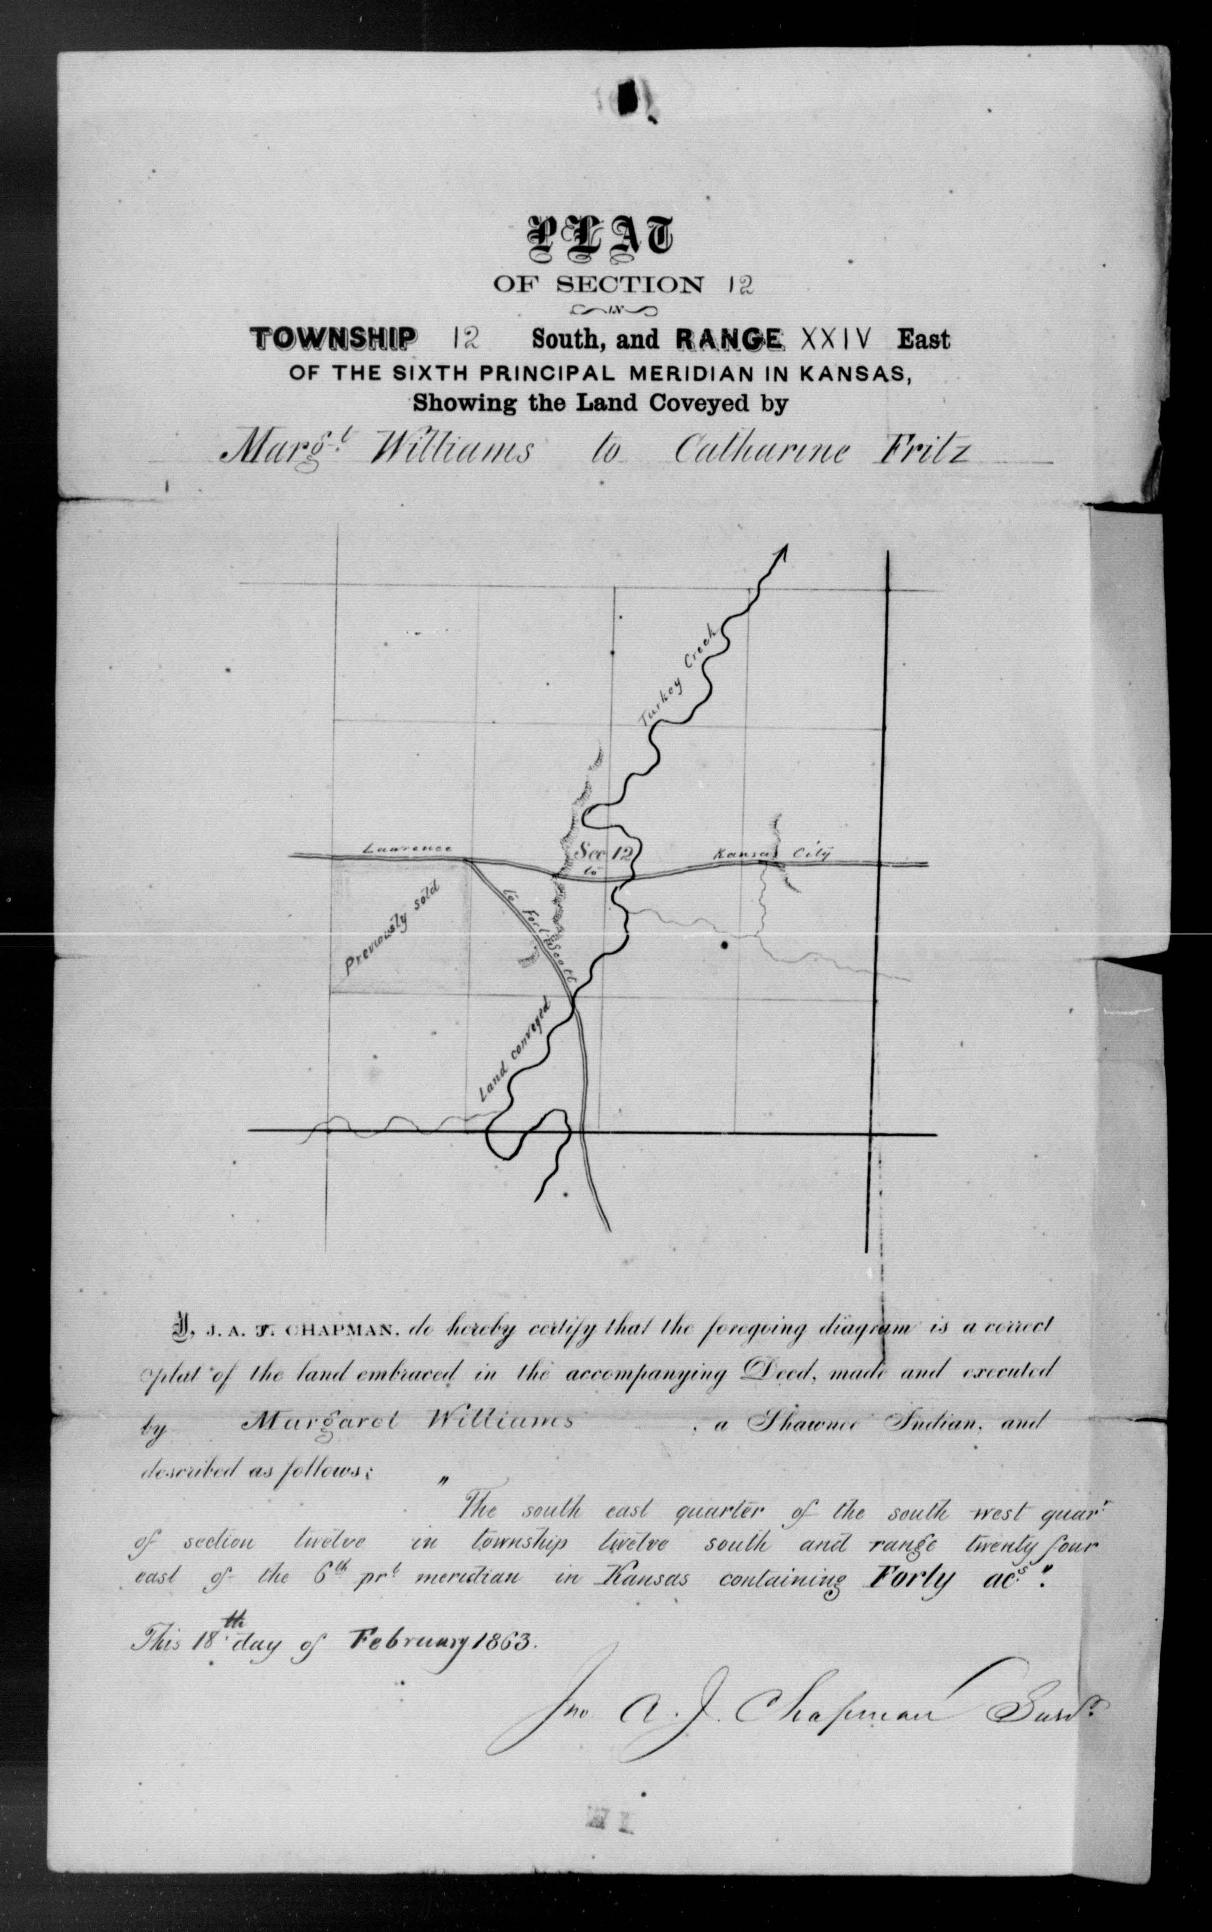 PLAT
OF SECTION 12
IN
TOWNSHIP 12 South, and RANGE XXIV East
OF THE SIXTH PRINCIPAL MERIDIAN IN KANSAS,
Showing the Land Coveyed by
Margt. Williams to Catharine Fritz
Turkey Creek
Lawrence
Sec 12
to
Kansas City
to Fort Scott
Previously sold
Land conveyed
I, J. A. F. CHAPMAN, do hereby certify that the foregoing diagram is a correct
plat of the land embraced in the accompanying Deed, made and executed
by Margaret Williams, a Shawnee Indian, and
described as follows;
"The south east quarter of the south west quarr
of section twelve in township twelve south and range twenty four
east of the 6th prl meridian in Kansas containing Forty acs."
This 18th day of February 1863.
Jno A. J. Chapman Survr.